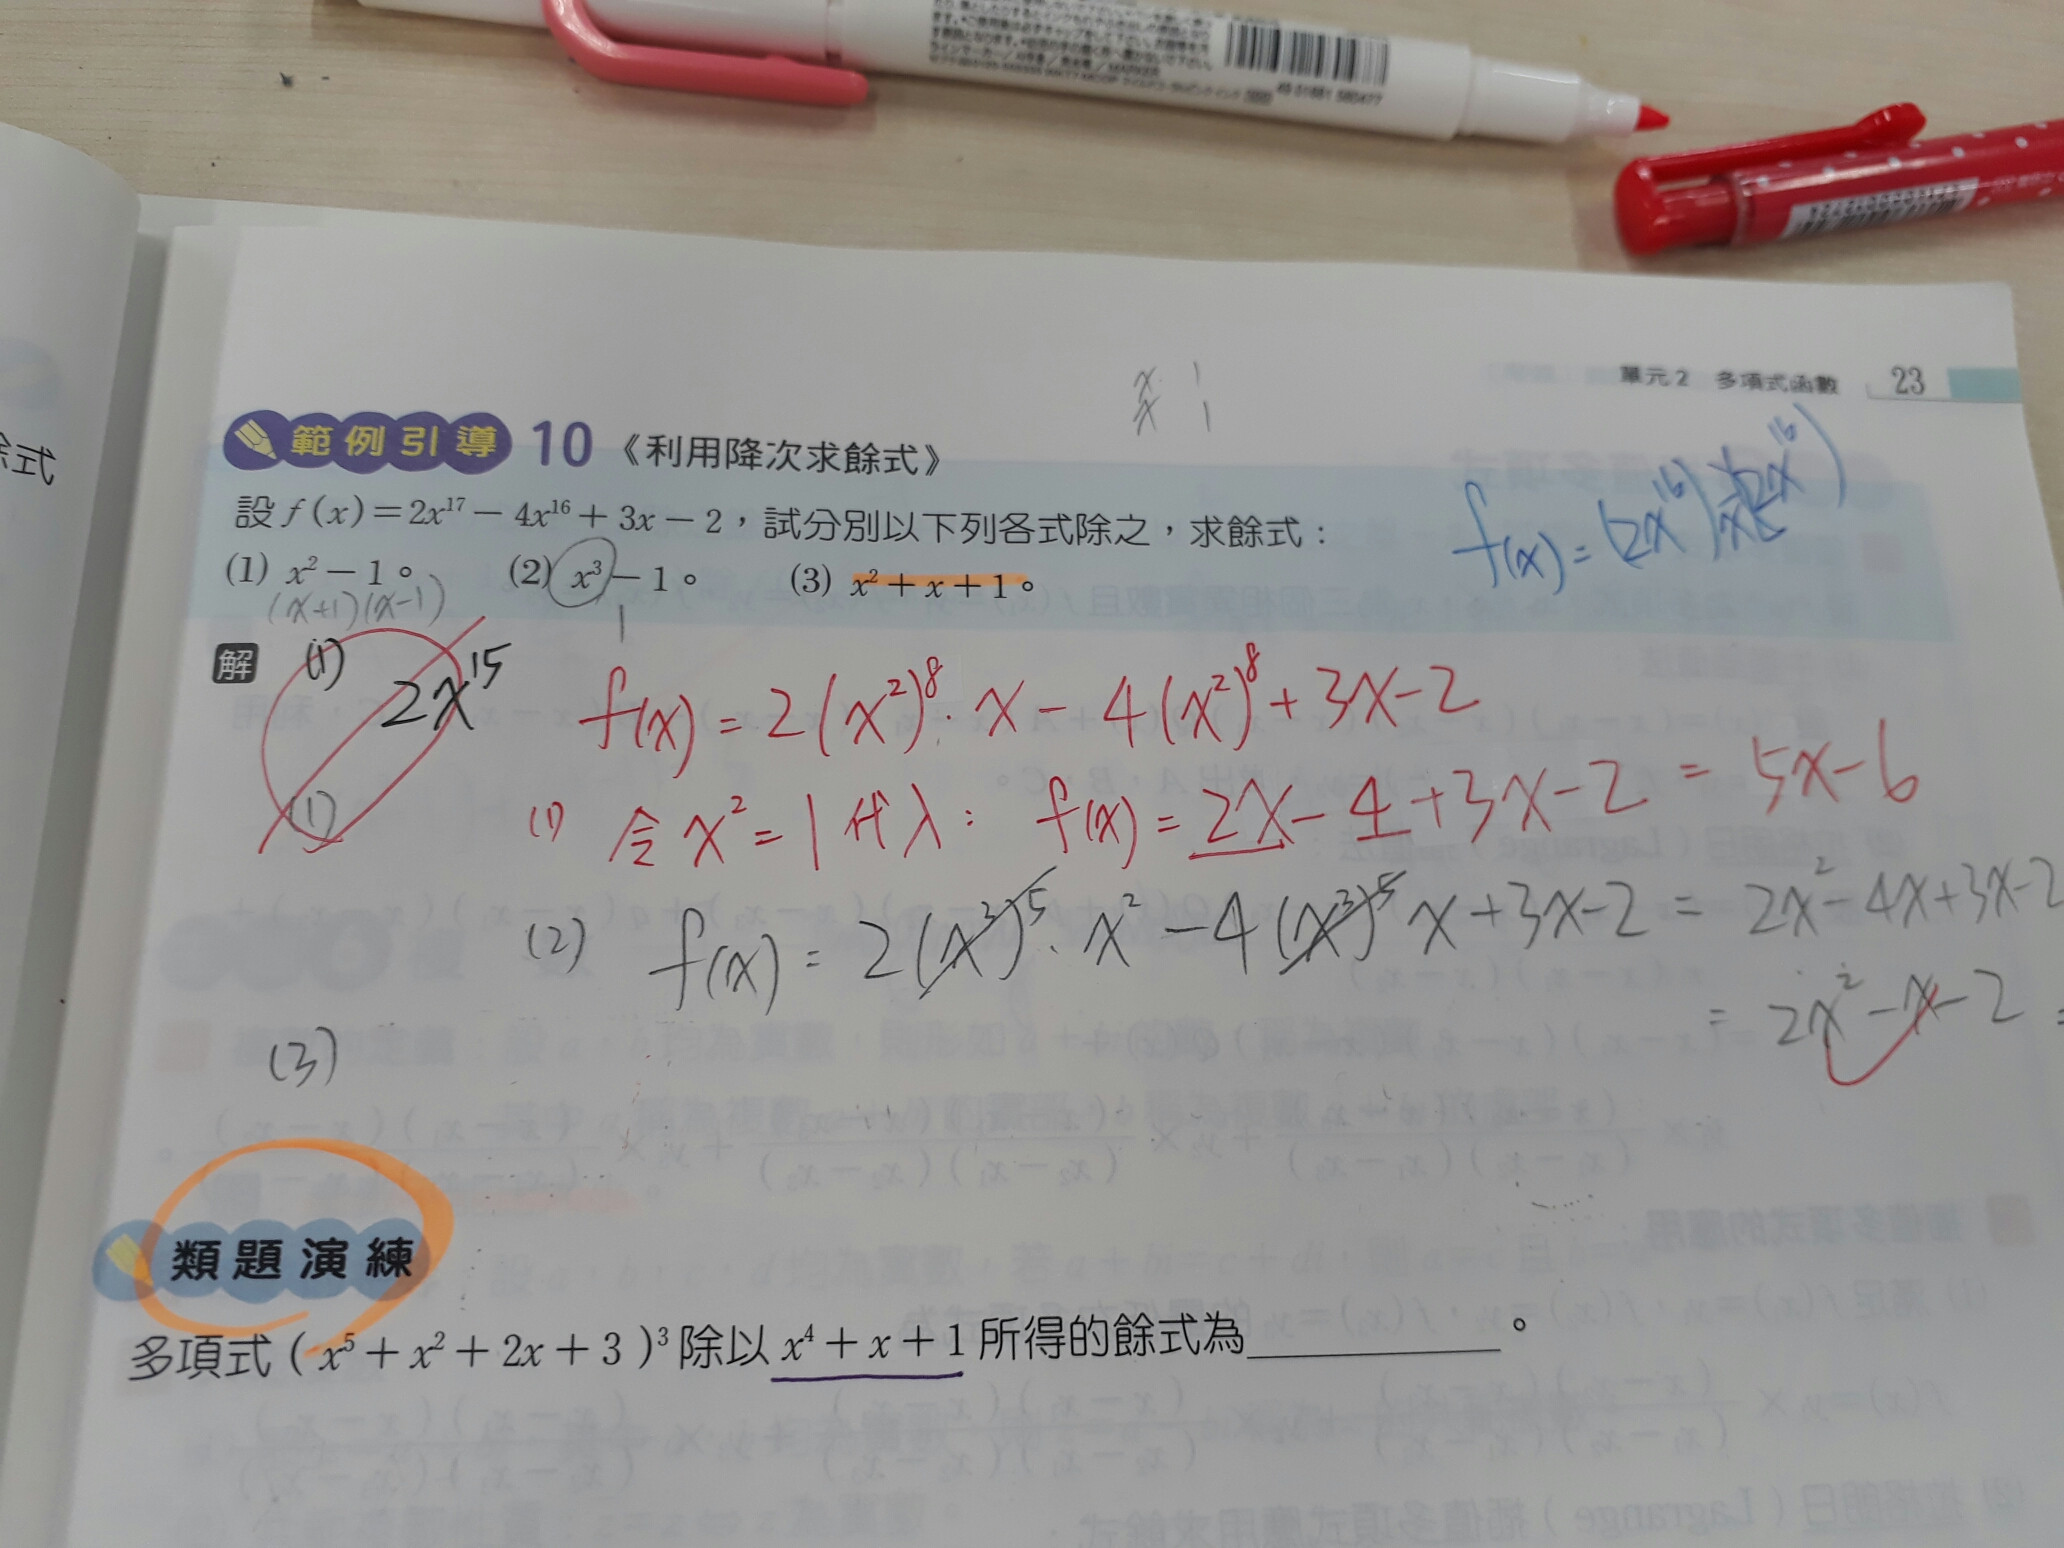 單元2 多項式函數 23
x 1
x 1
範例引導 10 《利用降次求餘式》
設 f(x)=2x¹⁷－4x¹⁶＋3x－2，試分別以下列各式除之，求餘式：
(1) x²－1。 (2) x³－1。 (3) x²＋x＋1。
(x+1)(x-1)
1
解 (1) 2x¹⁵
(1)
f(x) = 2(x²)⁸·x - 4(x²)⁸ + 3x - 2
(1) 令 x² = 1 代入: f(x) = 2x - 4 + 3x - 2 = 5x - 6
(2) f(x) = 2(x³)⁵·x² - 4(x³)⁵x + 3x - 2 = 2x² - 4x + 3x - 2
= 2x² - x - 2 =
(3)
類題演練
多項式 ( x⁵＋x²＋2x＋3 )³ 除以 x⁴＋x＋1 所得的餘式為＿＿＿＿＿＿。